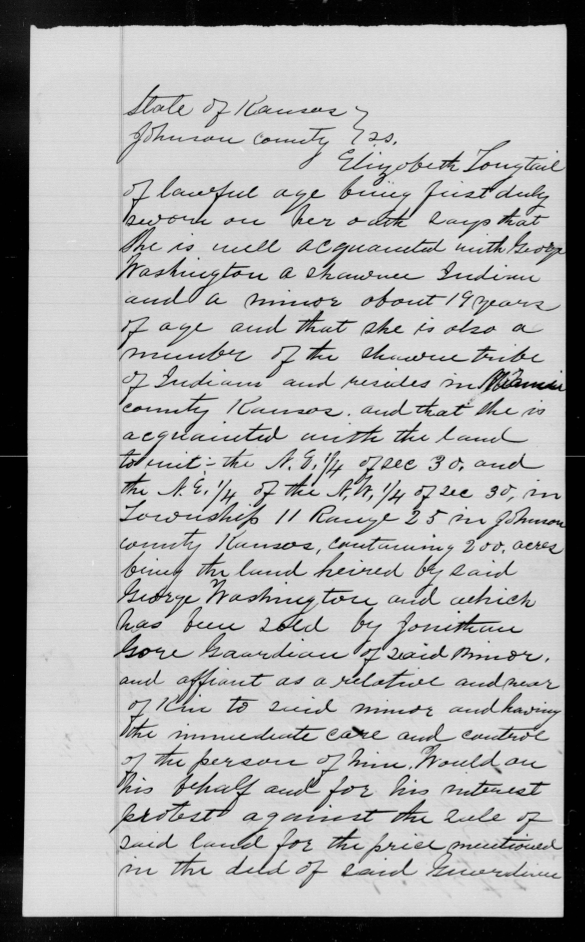 State of Kansas }
Johnson county } ss.
Elizabeth Longtail
of lawful age being first duly
sworn on her oath says that
she is well acquainted with George
Washington a shawnee Indian
and a minor about 19 years
of age and that she is also a
member of the shawnee tribe
of Indians and resides in Miami
county Kansas. and that she is
acquainted with the land
to wit:- the N.E. 1/4 of sec 30, and
the N.E. 1/4 of the N.W. 1/4 of sec 30, in
Township 11 Range 25 in Johnson
county Kansas, containing 200, acres
being the land heired by said
George Washington and which
has been sold by Jonithan
Gore Gaardian of said minor.
and affiant as a relative and near
of Kin to said minor and having
the immediate care and control
of the person of him. Would on
his behalf and for his interest
protest against the sale of
said land for the price mentioned
in the deed of said Guardian